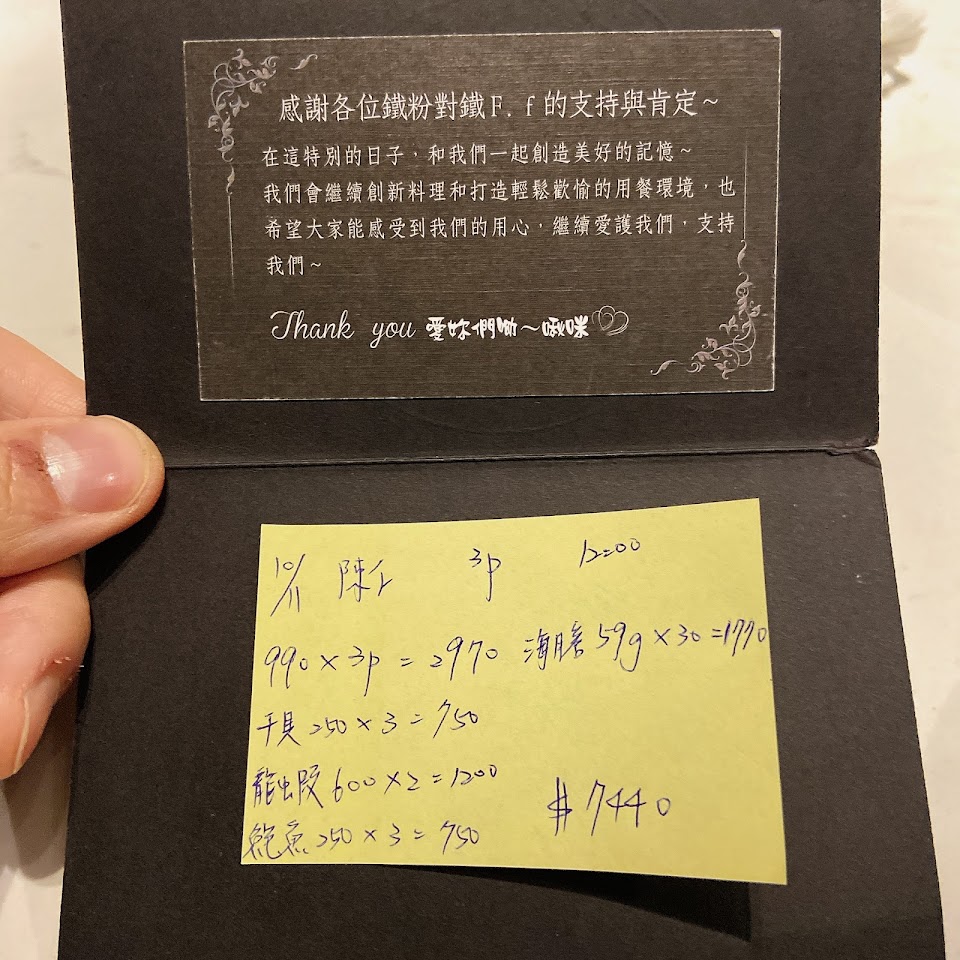 感謝各位鐵粉對鐵F.f的支持與肯定~
在這特別的日子，和我們一起創造美好的記憶~
我們會繼續創新料理和打造輕鬆歡愉的用餐環境，也
希望大家能感受到我們的用心，繼續愛護我們，支持
我們~
Thank you 愛妳們呦~啾咪
10/11 陳 3p 12:00
990×3p=2970 海膽59g×30=1770
干貝250×3=750
龍蝦600×2=1200
鮑魚250×3=750
$7440